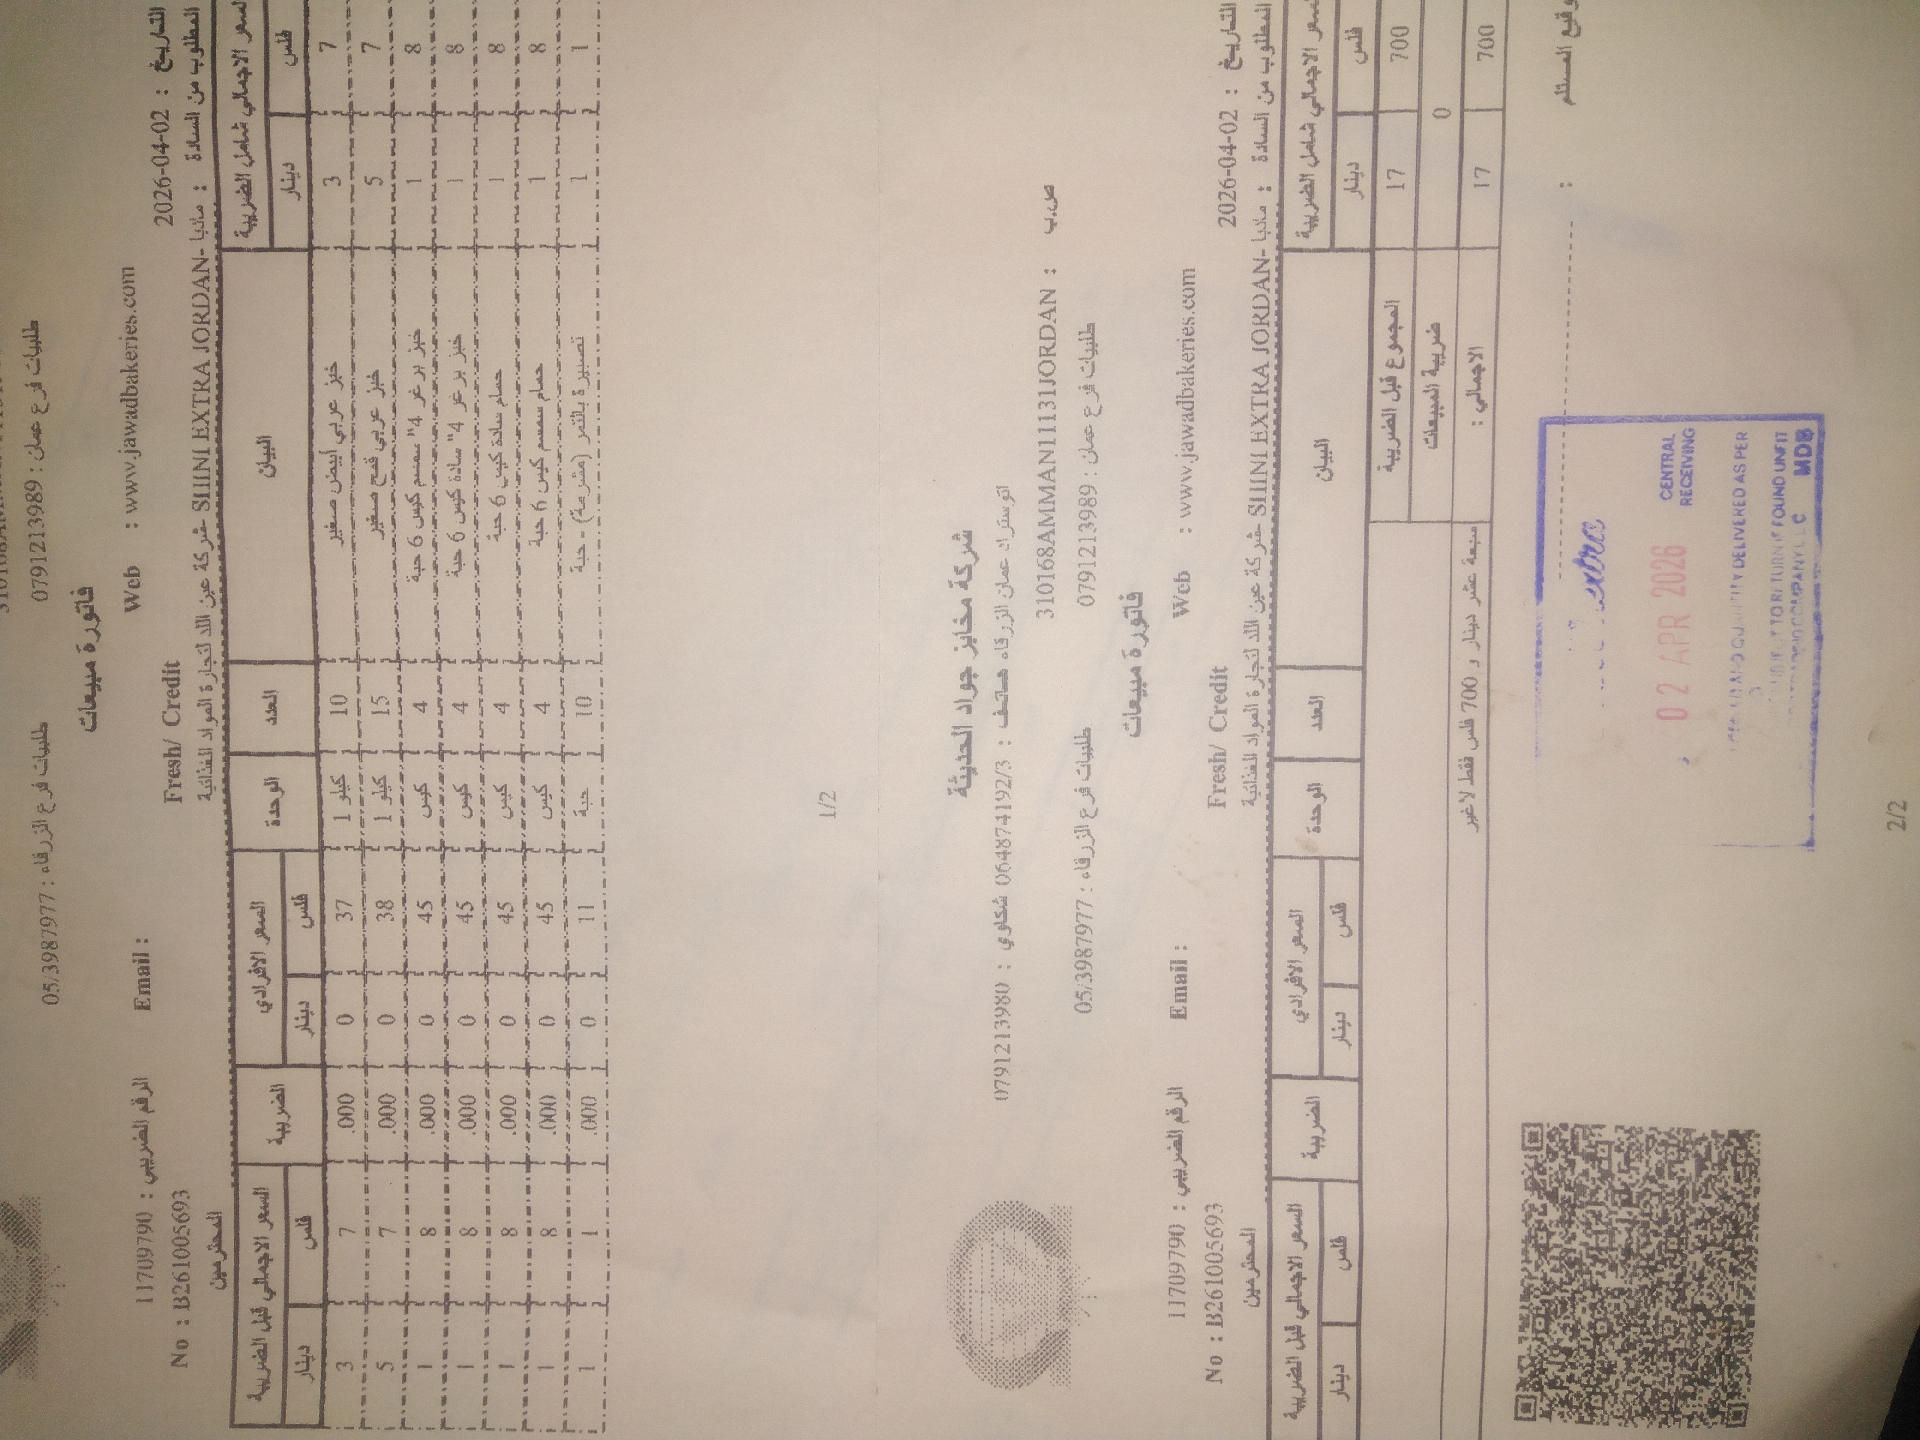 طلبيات فرع الزرقاء : 05/3987977 طلبيات فرع عمان : 0791213989
فاتورة مبيعات
الرقم الضريبي : 11709790 Email : Web : www.jawadbakeries.com
No : B261005693 Fresh/ Credit التاريخ : 2026-04-02
المطلوب من السادة : مادبا -SHINI EXTRA JORDAN -شركة عين اللد لتجارة المواد الغذائية المحترمين
السعر الاجمالي قبل الضريبة الضريبة السعر الافرادي الوحدة العدد البيان السعر الاجمالي شامل الضريبة
دينار فلس دينار فلس دينار فلس
3 7 .000 0 37 كيلو 1 10 خبز عربي أبيض صغير 3 7
5 7 .000 0 38 كيلو 1 15 خبز عربي قمح صغير 5 7
1 8 .000 0 45 كيس 4 خبز برغر 4" سمسم كيس 6 حبة 1 8
1 8 .000 0 45 كيس 4 خبز برغر 4" سادة كيس 6 حبة 1 8
1 8 .000 0 45 كيس 4 حمام سادة كيس 6 حبة 1 8
1 8 .000 0 45 كيس 4 حمام سمسم كيس 6 حبة 1 8
1 1 .000 0 11 حبة 10 تصبيرة بالتمر (مشرمة) - حبة 1 1
1/2
شركة مخابز جواد الحديثة
اتوستراد عمان الزرقاء هاتف : 064874192/3 شكاوي : 0791213980
310168AMMAN11131JORDAN : ص.ب
طلبيات فرع الزرقاء : 05/3987977 طلبيات فرع عمان : 0791213989
فاتورة مبيعات
الرقم الضريبي : 11709790 Email : Web : www.jawadbakeries.com
No : B261005693 Fresh/ Credit التاريخ : 2026-04-02
المطلوب من السادة : مادبا -SHINI EXTRA JORDAN -شركة عين اللد لتجارة المواد الغذائية المحترمين
السعر الاجمالي قبل الضريبة الضريبة السعر الافرادي الوحدة العدد البيان السعر الاجمالي شامل الضريبة
دينار فلس دينار فلس دينار فلس
المجموع قبل الضريبة 17 700
ضريبة المبيعات 0
سبعة عشر دينار و 700 فلس فقط لاغير الاجمالي : 17 700
توقيع المستلم :
extra
02 APR 2026 CENTRAL RECEIVING
QUANTITY DELIVERED AS PER
SUBJECT TO RETURN IF FOUND UNFIT
TRADING COMPANY LLC MDB
2/2